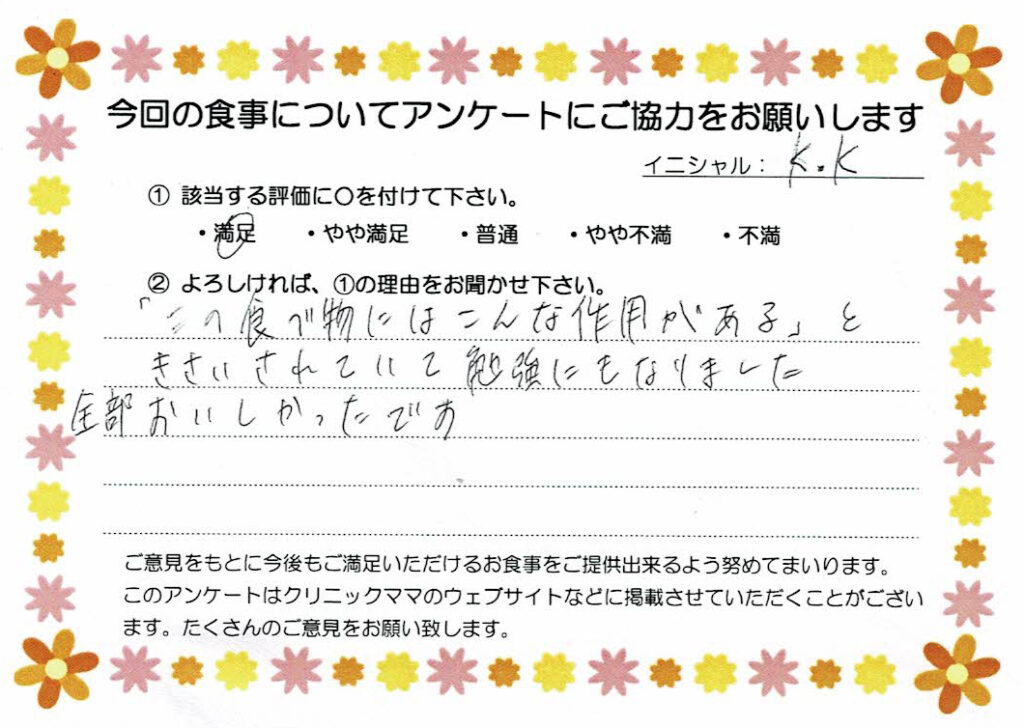 今回の食事についてアンケートにご協力をお願いします
イニシャル： K.K
① 該当する評価に○を付けて下さい。
・満足 ・やや満足 ・普通 ・やや不満 ・不満
② よろしければ、①の理由をお聞かせ下さい。
「この食べ物にはこんな作用がある」と
きさいされていて勉強にもなりました
全部おいしかったです
ご意見をもとに今後もご満足いただけるお食事をご提供出来るよう努めてまいります。
このアンケートはクリニックママのウェブサイトなどに掲載させていただくことがござい
ます。たくさんのご意見をお願い致します。